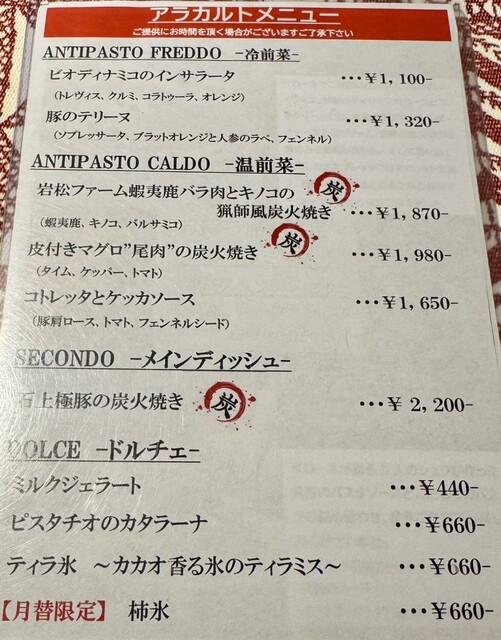 アラカルトメニュー
ご提供にお時間を頂く場合がございますご了承下さい
ANTIPASTO FREDDO -冷前菜-
ビオディナミコのインサラータ ・・・¥1,100-
(トレヴィス、クルミ、コラトゥーラ、オレンジ)
豚のテリーヌ ・・・¥1,320-
(ソプレッサータ、ブラットオレンジと人参のラペ、フェンネル)
ANTIPASTO CALDO -温前菜-
岩松ファーム蝦夷鹿バラ肉とキノコの 炭
猟師風炭火焼き ・・・¥1,870-
(蝦夷鹿、キノコ、バルサミコ)
皮付きマグロ”尾肉”の炭火焼き 炭 ・・・¥1,980-
(タイム、ケッパー、トマト)
コトレッタとケッカソース ・・・¥1,650-
(豚肩ロース、トマト、フェンネルシード)
SECONDO -メインディッシュ-
石上極豚の炭火焼き 炭 ・・・¥ 2,200-
DOLCE -ドルチェ-
ミルクジェラート ・・・¥440-
ピスタチオのカタラーナ ・・・¥660-
ティラ氷 ～カカオ香る氷のティラミス～ ・・・¥660-
【月替限定】 柿氷 ・・・¥660-